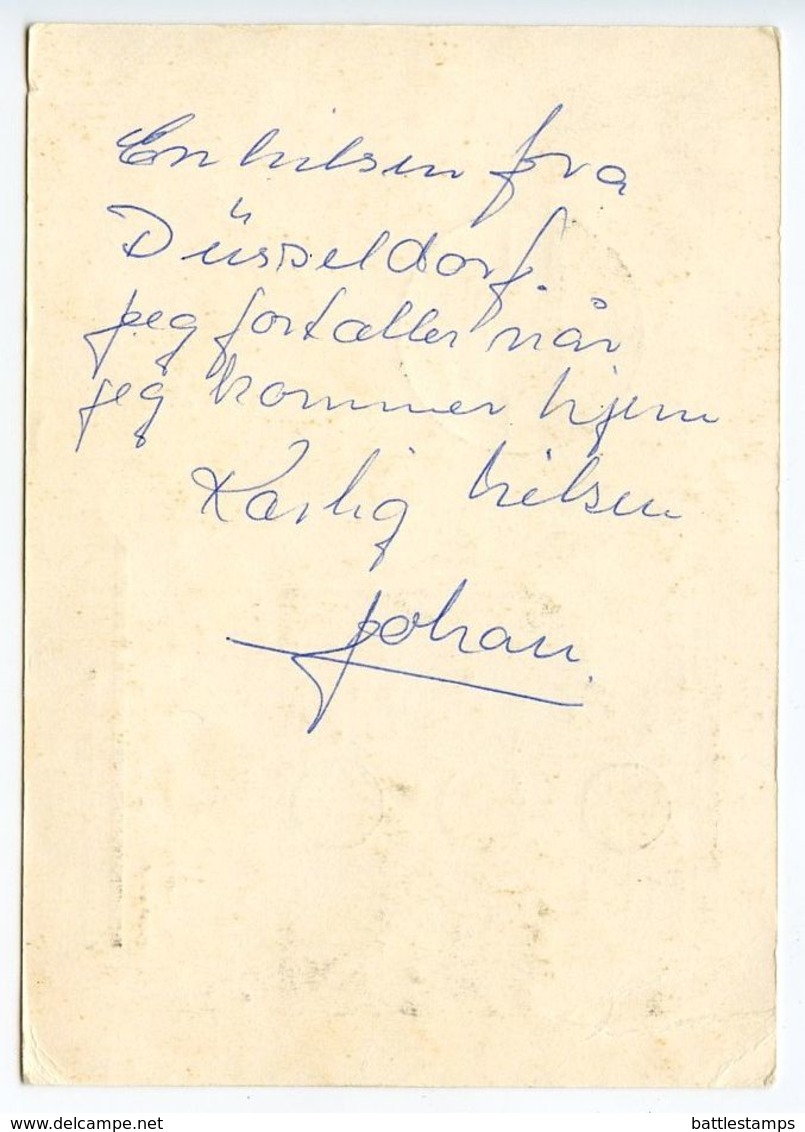 En hilsen fra
Düsseldorf.
jeg fortæller når
jeg kommer hjem
Kærlig hilsen
Johan.
www.delcampe.net
battlestamps